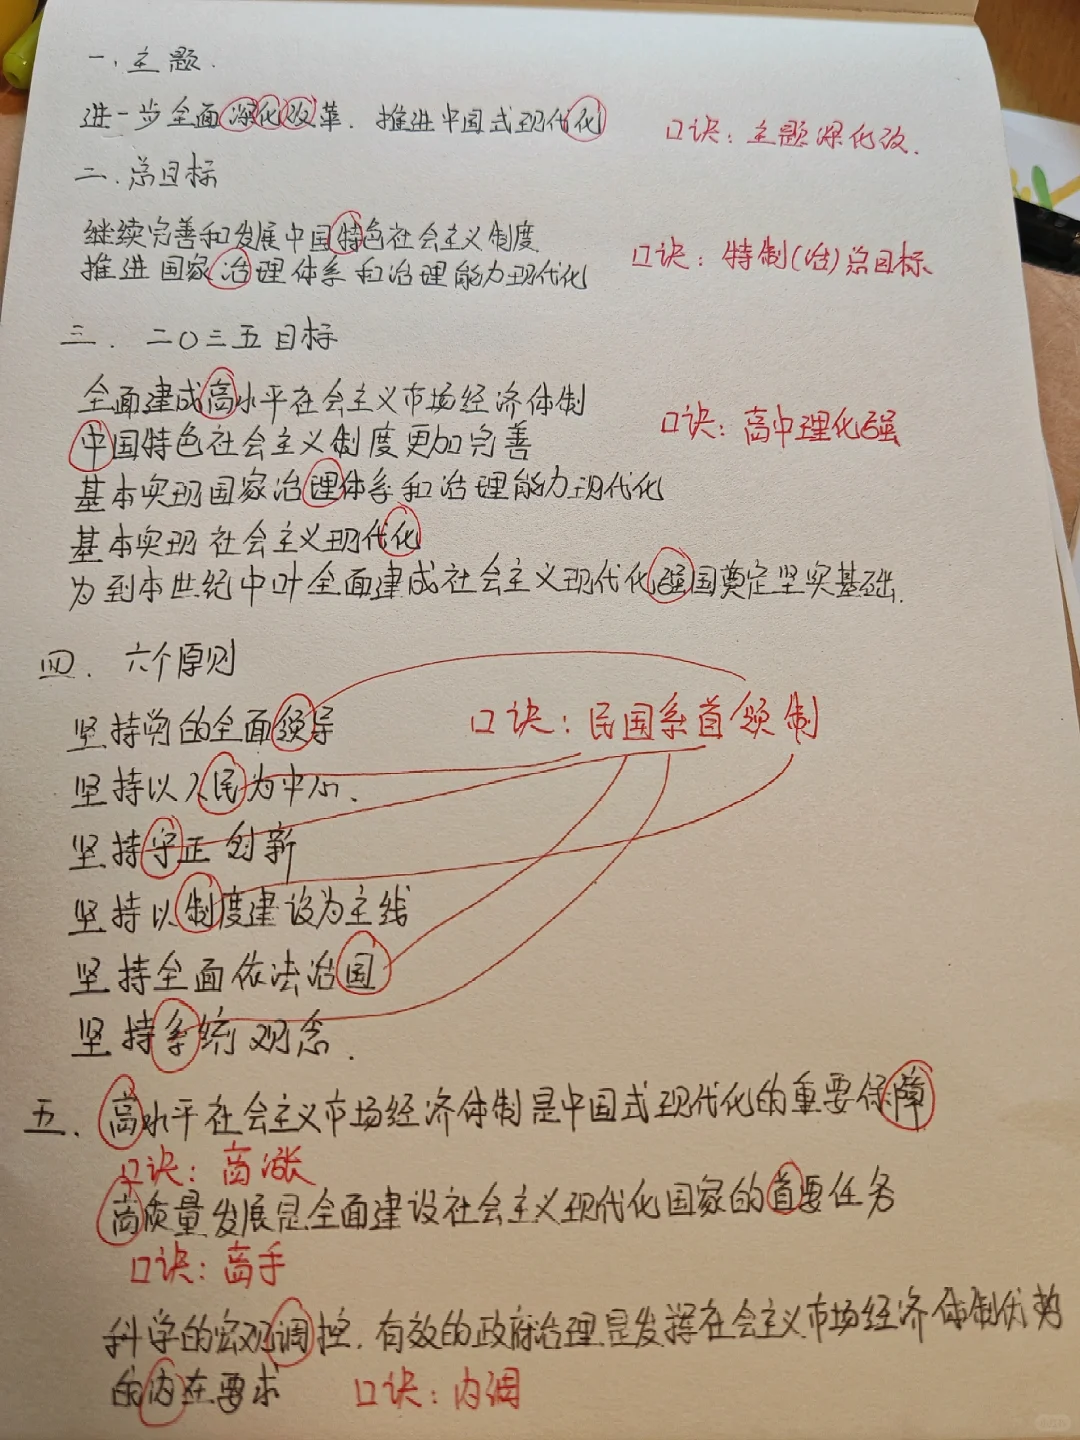 一、主题.
进一步全面深化改革.推进中国式现代化
口诀:主题深化改.
二.总目标
继续完善和发展中国特色社会主义制度
推进国家治理体系和治理能力现代化
口诀:特制(治)总目标
三.二〇三五目标
全面建成高水平社会主义市场经济体制
口诀:高中理化强
中国特色社会主义制度更加完善
基本实现国家治理体系和治理能力现代化
基本实现社会主义现代化
为到本世纪中叶全面建成社会主义现代化强国奠定坚实基础.
四.六个原则
坚持党的全面领导
口诀:民国系首领制
坚持以人民为中心.
坚持守正创新
坚持以制度建设为主线
坚持全面依法治国
坚持系统观念.
五.高水平社会主义市场经济体制是中国式现代化的重要保障
口诀:高涨
高质量发展是全面建设社会主义现代化国家的首要任务
口诀:高手
科学的宏观调控.有效的政府治理是发挥社会主义市场经济体制优势
的内在要求
口诀:内调